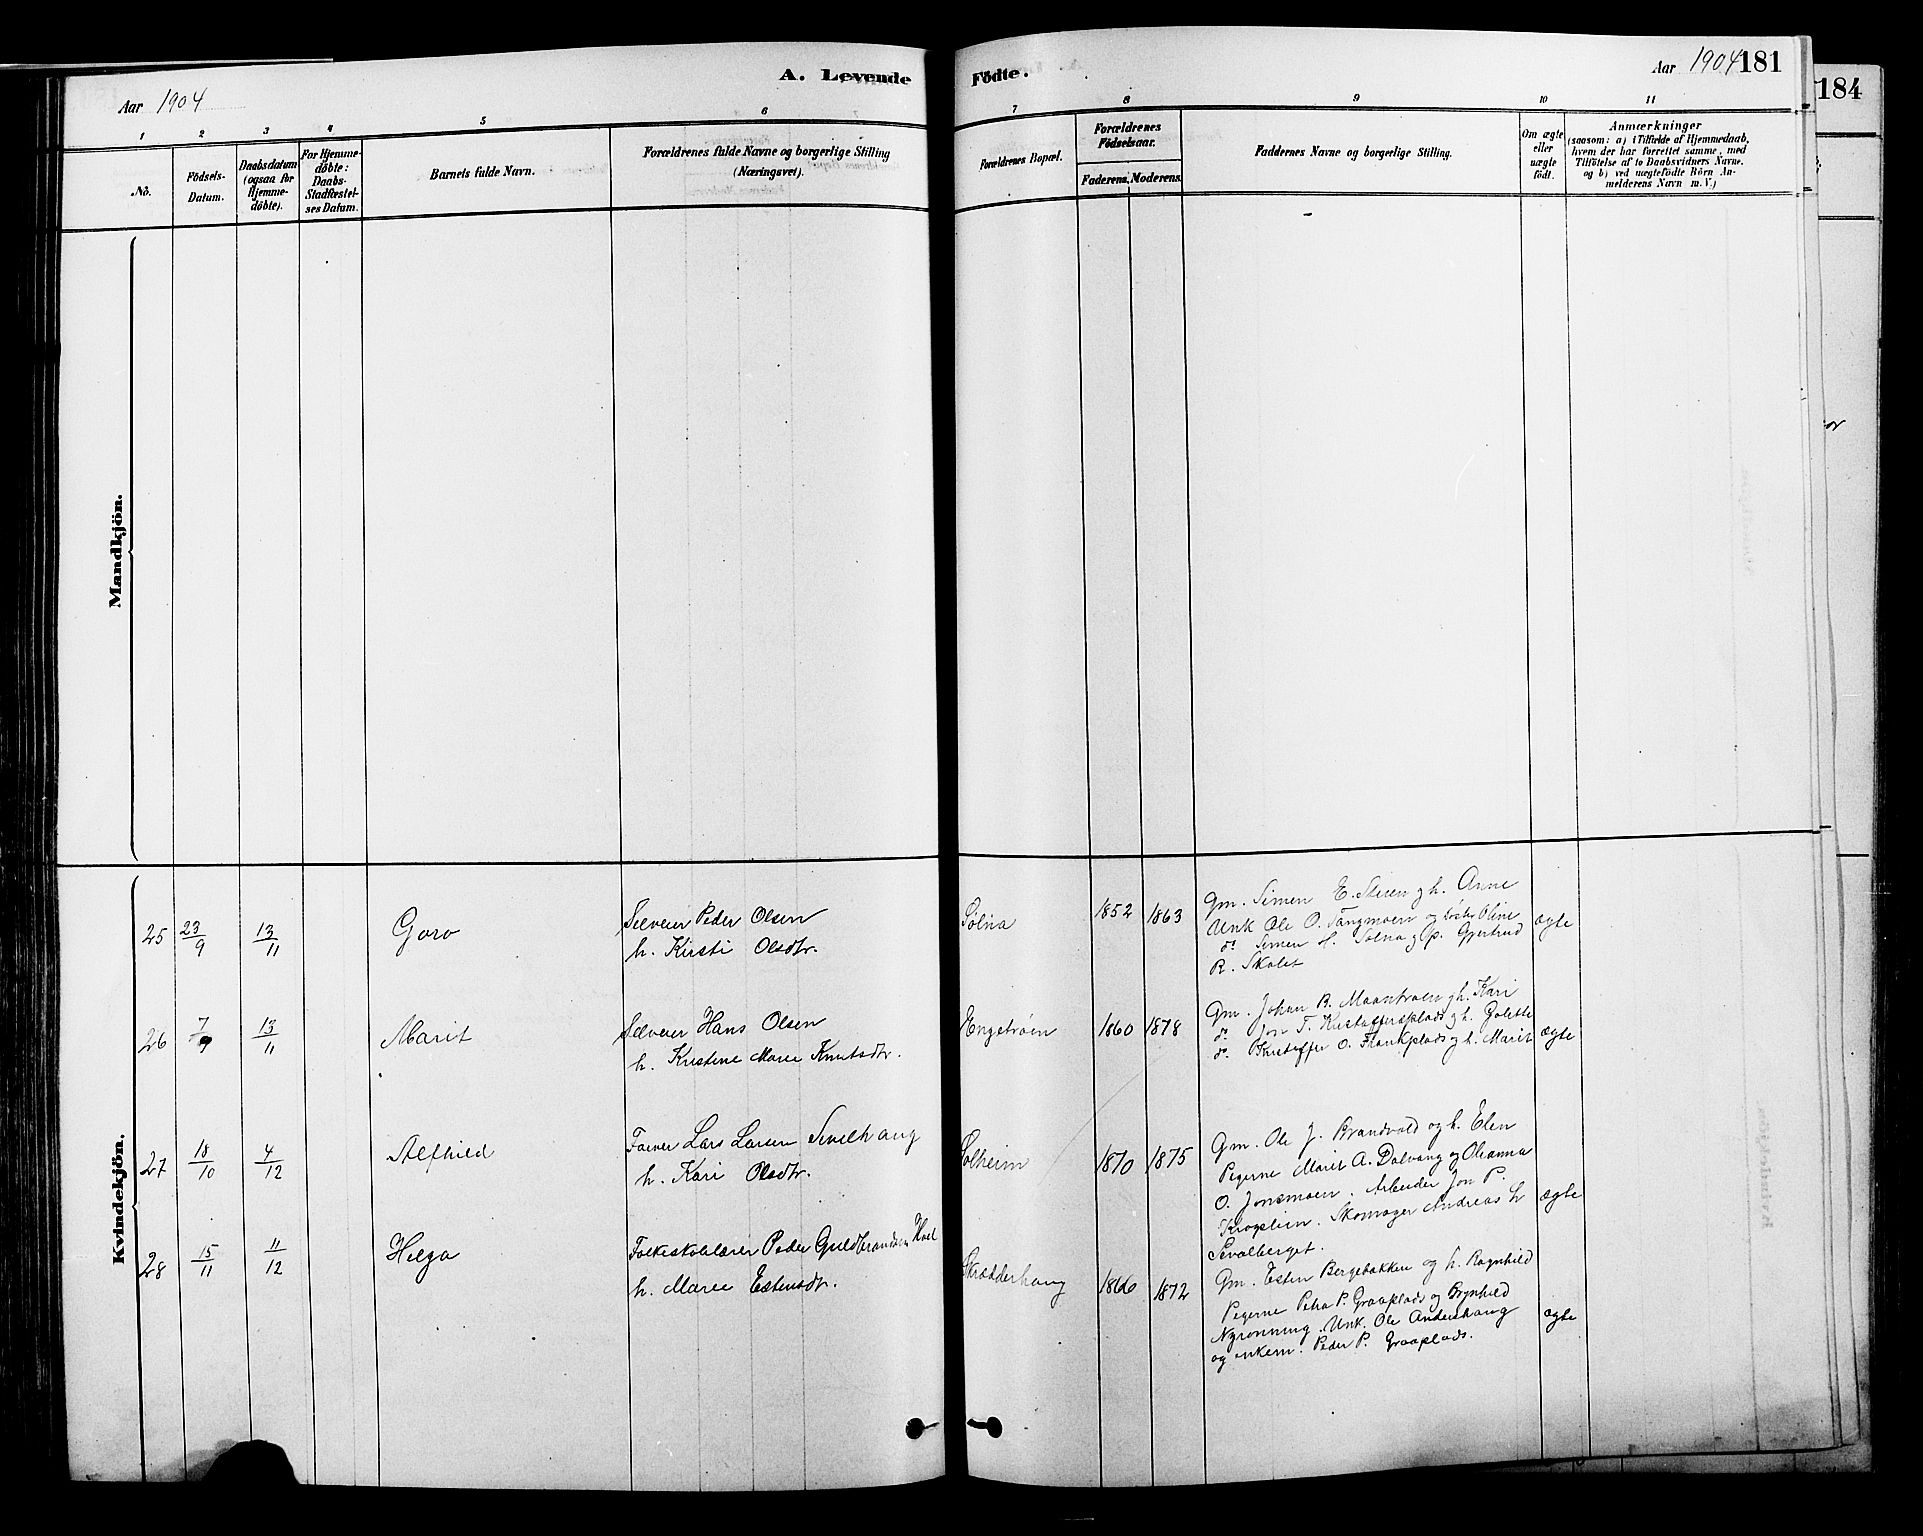 A. Levende
Födte.
Aar 1904
Aar 1904 181
184
1
2
3
4
5
6
7
8
9
10
11
No.
Födsels-
Datum.
Daabsdatum
(ogsaa for
Hjemme-
döbte).
For Hjemme-
döbte:
Daabs-
Stadfæstel-
ses Datum.
Barnets fulde Navn.
Forældrenes fulde Navne og borgerlige Stilling
(Næringsvei).
Forældrenes Bopæl.
Forældrenes
Födselsaar.
Faderens.
Moderens.
Faddernes Navne og borgerlige Stilling.
Om ægte
eller
uægte
født.
Anmærkninger
(saasom: a) i Tilfælde af Hjemmedaab,
hvem der har forrettet samme, med
Tilföielse af to Daabsvidners Navne.
og b) ved uægtefödte Börn An-
melderens Navn m. V.)
Mandkjön.
Kvindekjön.
25
23/9
13/11
Goro
Selveier Peder Olsen
h. Kirsti Olsdtr.
Sölna
1852
1863
Gm. Simen E. Steien og h. Anne
Unk Ole O. Tangmoen og Oline
do. Simen H. Solna og p. Gjertrud
R. Skolet
ægte
26
7/9
13/11
Marit
Selveier Hans Olsen
h. Kristine Marie Knutsdtr.
Engetröen
1860
1878
Gm. Johan B. Moantroen og h. Kari
do. Jon T. Kristoffersplads og h. Golette
do. Kristoffer O. Flankplads og h. Marit
ægte
27
18/10
4/12
Alfhild
Farver Lars Larsen Sevilhaug
h. Kari Olsdtr.
Solheim
1870
1875
Gm. Ole J. Brandvold og h. Elen
Pigerne Marit A. Dalvang og Oleanna
O. Jonsmoen. Arbeider Jon P.
Krogslien. Skomager Andreas L
Sevalberget.
ægte
28
15/11
11/12
Helga
Folkeskolelærer Peder Guldbrandsen Hoel
h. Marie Estensdtr.
Skradderhaug
1866
1872
Gm. Esten Bergebakken og h. Ragnhild
Pigerne Petra P. Graaplads og Brynhild
Nyrönning. Unk. Ole Andershaug
og enkem. Peder P. Graaplads.
ægte